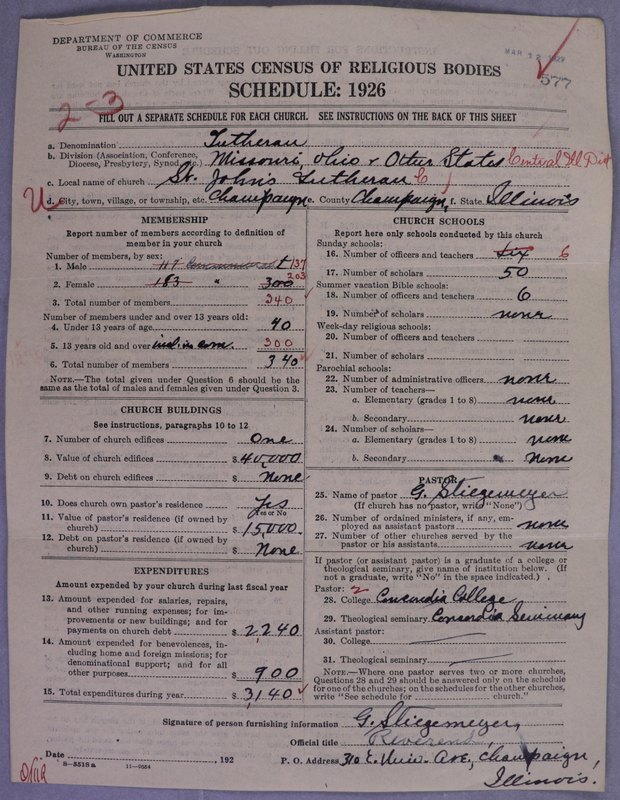 DEPARTMENT OF COMMERCE
BUREAU OF THE CENSUS
WASHINGTON
UNITED STATES CENSUS OF RELIGIOUS BODIES
577
SCHEDULE: 1926
2-3
FILL OUT A SEPARATE SCHEDULE FOR EACH CHURCH. SEE INSTRUCTIONS ON THE BACK OF THIS SHEET
a. Denomination Lutheran
b. Division (Association, Conference, Diocese, Presbytery, Synod, etc.) Missouri, Ohio + Other States Central Ill Dist
c. Local name of church St. John's Lutheran C
U d. City, town, village, or township, etc. Champaign e. County Champaign, f. State Illinois
MEMBERSHIP
Report number of members according to definition of
member in your church
Number of members, by sex:
1. Male 117 Communicant 137
2. Female 183 " 300 203
3. Total number of members 340
Number of members under and over 13 years old:
4. Under 13 years of age 40
5. 13 years old and over 300
6. Total number of members 340
NOTE.—The total given under Question 6 should be
same as the total of males and females given under Question 3.
CHURCH BUILDINGS
See instructions, paragraphs 10 to 12
7. Number of church edifices One
8. Value of church edifices $ 40,000
9. Debt on church edifices $ None
10. Does church own pastor's residence Yes
Yes or No
11. Value of pastor's residence (if owned by
church) $ 15,000.
12. Debt on pastor's residence (if owned by
church) $ None
EXPENDITURES
Amount expended by your church during last fiscal year
13. Amount expended for salaries, repairs,
and other running expenses; for im-
provements or new buildings; and for
payments on church debt $ 2240
14. Amount expended for benevolences, in-
cluding home and foreign missions; for
denominational support; and for all
other purposes $ 900
15. Total expenditures during year $ 3,140
CHURCH SCHOOLS
Report here only schools conducted by this church
Sunday schools:
16. Number of officers and teachers Six 6
17. Number of scholars 50
Summer vacation Bible schools:
18. Number of officers and teachers 6
19. Number of scholars none
Week-day religious schools:
20. Number of officers and teachers
21. Number of scholars
Parochial schools:
22. Number of administrative officers none
23. Number of teachers—
a. Elementary (grades 1 to 8) none
b. Secondary none
24. Number of scholars—
a. Elementary (grades 1 to 8) none
b. Secondary None
PASTOR
25. Name of pastor G. Stiegemeyer
(If church has no pastor, write "None")
26. Number of ordained ministers, if any, em-
ployed as assistant pastors none
27. Number of other churches served by the
pastor or his assistants none
If pastor (or assistant pastor) is a graduate of a college or
theological seminary, give name of institution below. (If
not a graduate, write "No" in the space indicated.)
Pastor: 2
28. College Concordia College
29. Theological seminary Concordia Seminary
Assistant pastor:
30. College
31. Theological seminary
NOTE.—Where one pastor serves two or more churches,
Questions 28 and 29 should be answered only on the schedule
for one of the churches; on the schedules for the other churches,
write "See schedule for church."
Signature of person furnishing information G. Stiegemeyer,
Official title Reverend
Date , 192
P. O. Address 310 E. Univ. Ave., Champaign,
Illinois.
8-5518a 11-9554